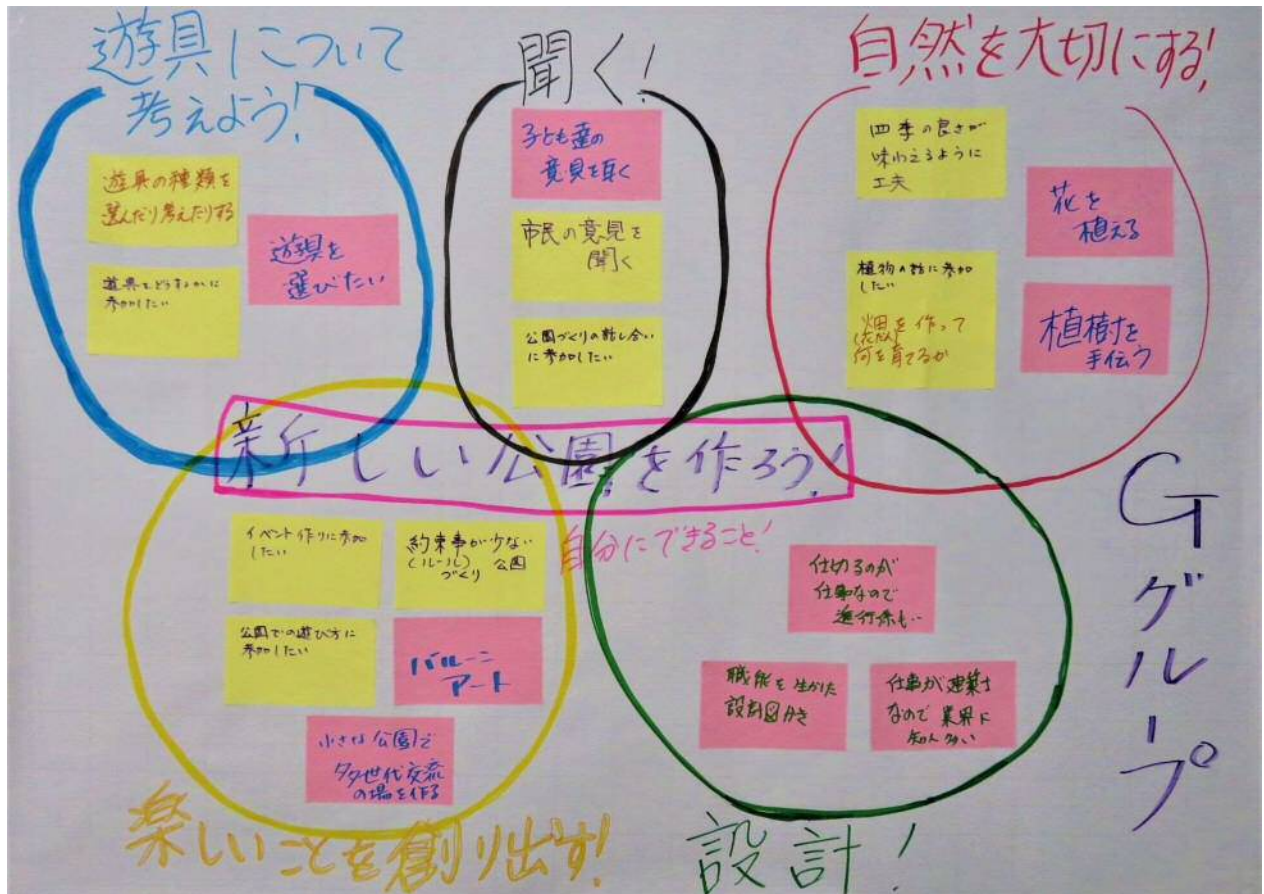 遊具について
考えよう!
遊具の種類を
選んだり考えたりする
遊具を
選びたい
遊具をどうするかに
参加したい
聞く!
子ども達の
意見を聞く
市民の意見を
聞く
公園づくりの話し合い
に参加したい
自然を大切にする!
四季の良さが
味わえるように
工夫
花を
植える
植物の話に参加
したい
畑を作って
(花だん)
何を育てるか
植樹を
手伝う
新しい公園を作ろう!
自分にできること!
Gグループ
イベント作りに参加
したい
約束事が少ない
(ルール)づくり 公園
公園での遊び方に
参加したい
バルーン
アート
小さな公園で
多世代交流
の場を作る
楽しいことを創り出す!
仕切るのが
仕事なので
進行係も…
職能を生かした
設計図かき
仕事が建築士
なので業界に
知人多い
設計!